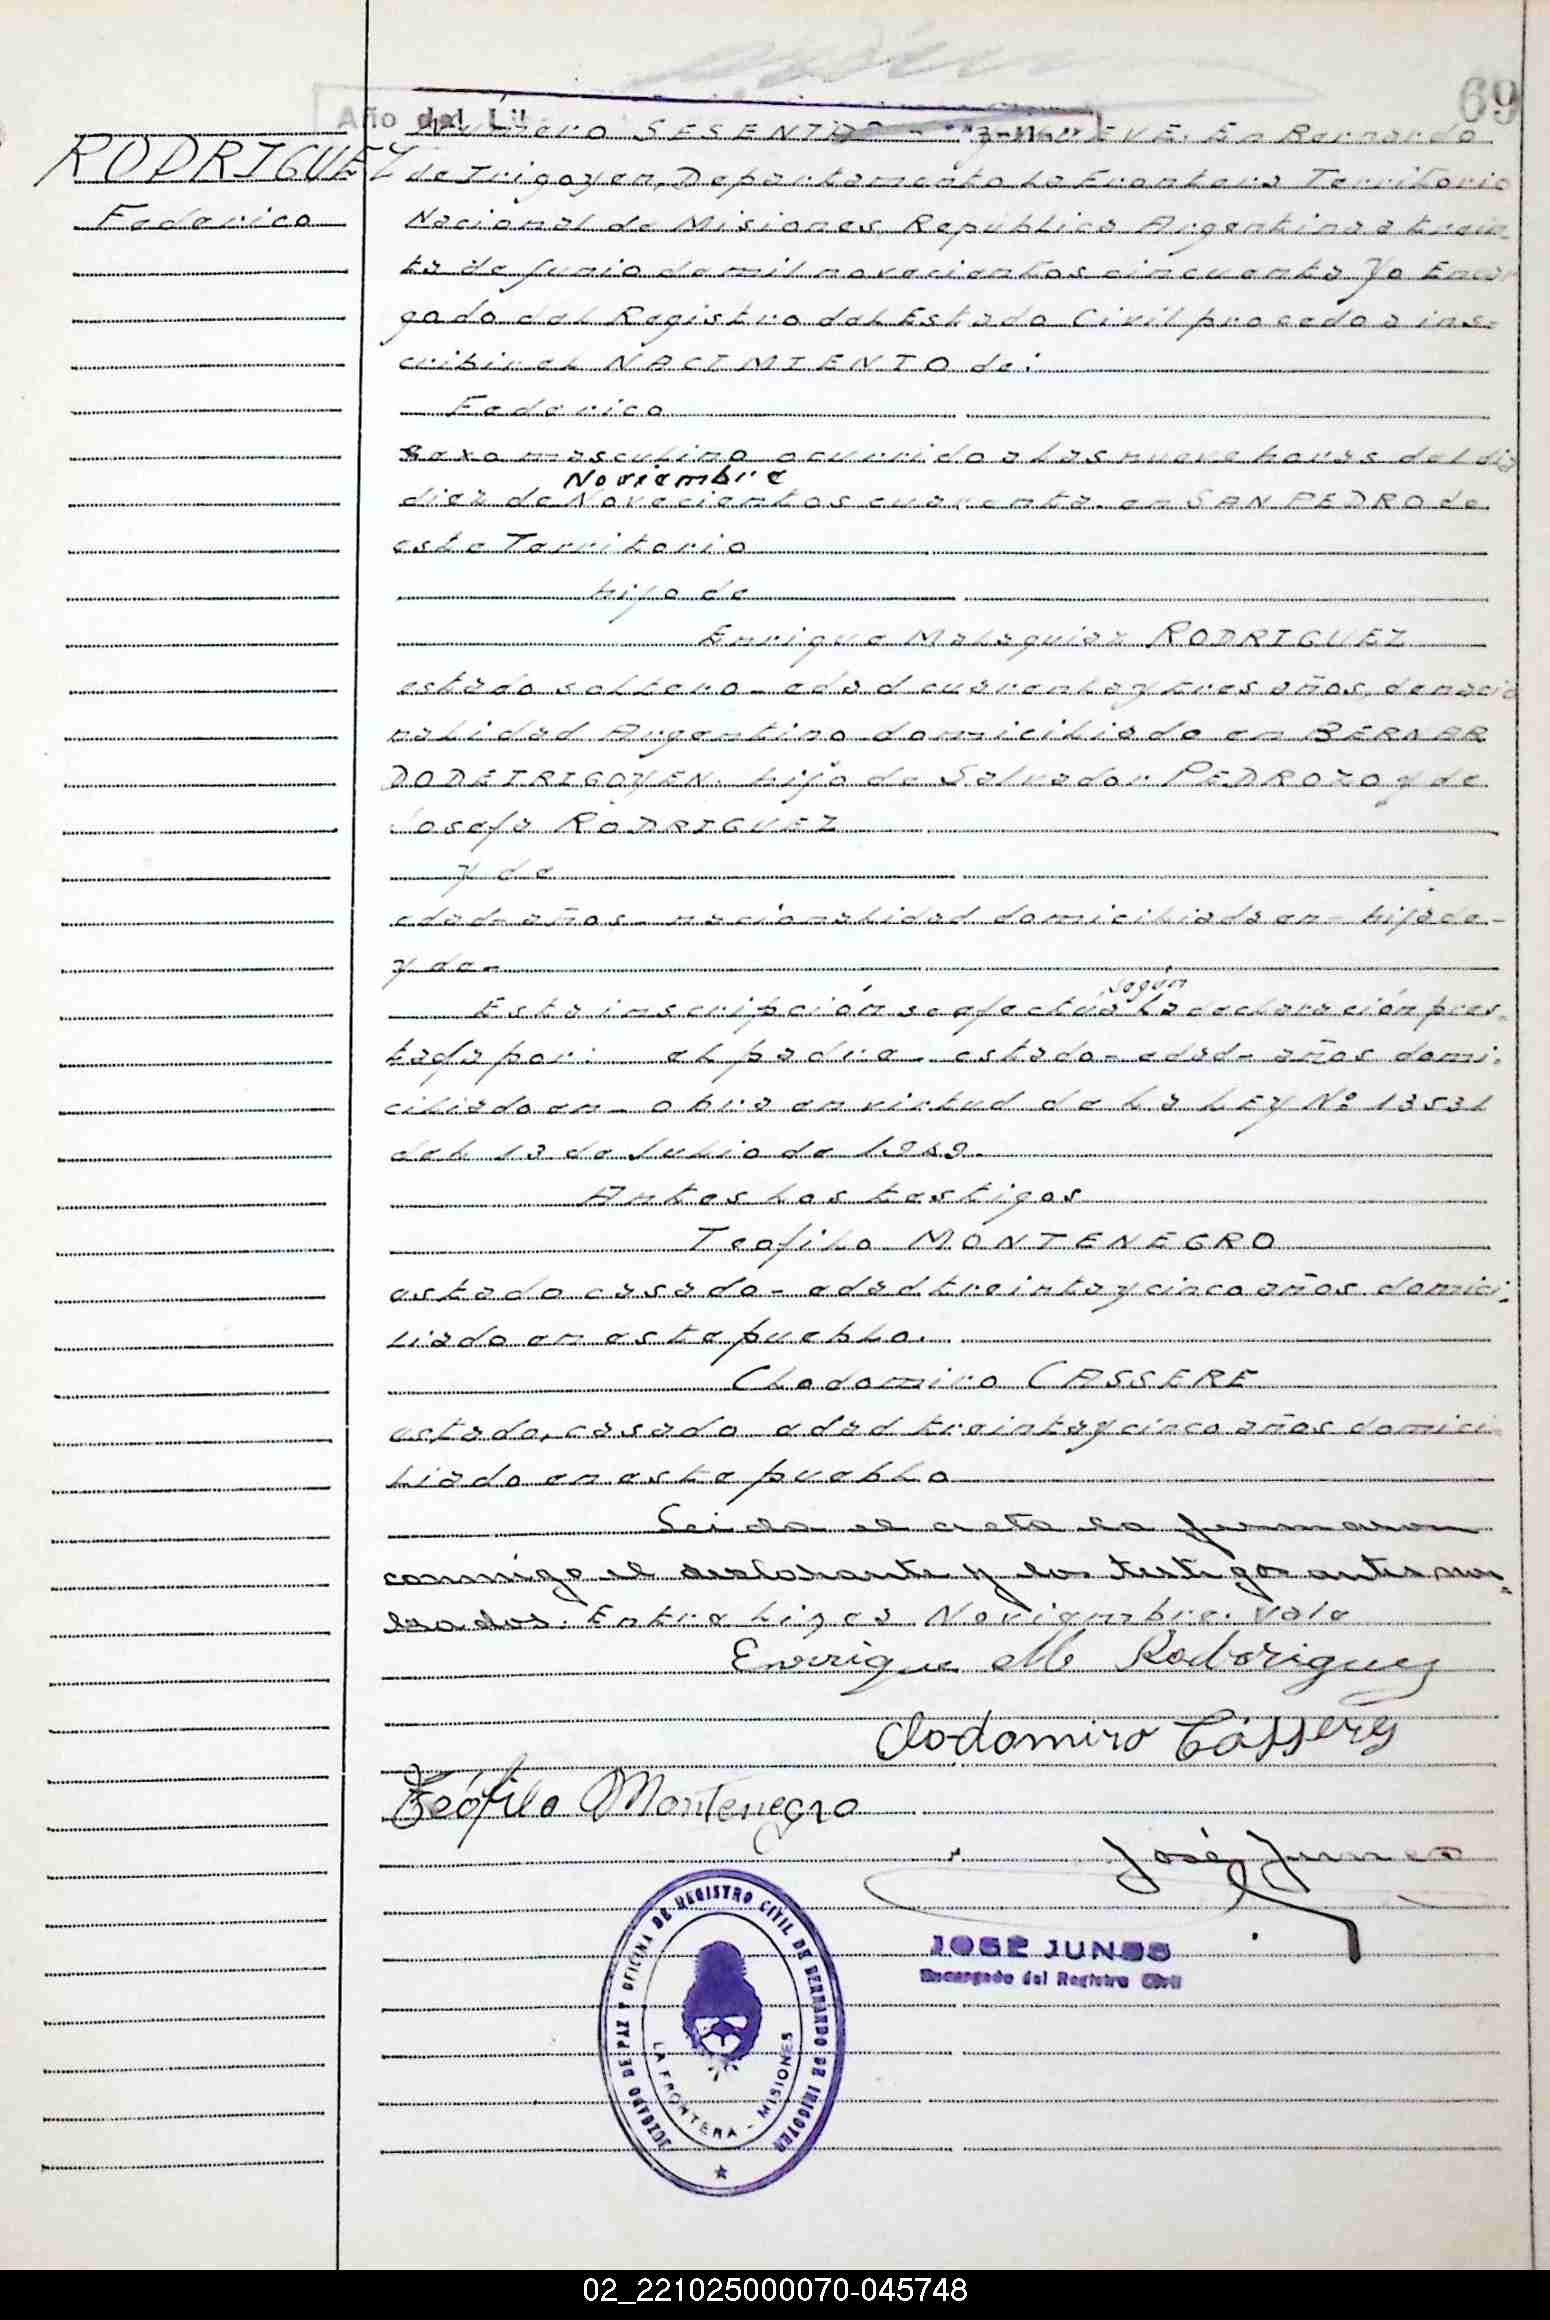 69
Año del Li
RODRIGUEZ
Federico
Numero SESENTA y NUEVE. En Bernardo
de Irigoyen, Departamento La Frontera Territorio
Nacional de Misiones, República Argentina a trein-
ta de Junio de mil novecientos cincuenta Yo Encar
gado del Registro del Estado Civil procedo a ins-
cribir el NACIMIENTO de:
Federico
sexo masculino ocurrido a las nueve horas del dia
Noviembre
diez de Novecientos cuarenta. en SAN PEDRO de
este Territorio
hijo de
Enrique Malaquias RODRIGUEZ
estado soltero - edad cuarenta y tres años, de nacio
nalidad Argentino domiciliado en BERNAR
DO DE IRIGOYEN. hijo de Salvador PEDROZO y de
Josefa RODRIGUEZ
y de
edad - años - nacionalidad domiciliada en - hija de -
y de -
según
Esta inscripción se efectúa la declaración pres-
tada por: el padre - estado - edad - años domi-
ciliado en - obra en virtud de la LEY Nº 13531
del 13 de Julio de 1.949.
Antes los testigos
Teofilo MONTENEGRO
estado casado - edad treinta y cinco años domici-
liado en este pueblo.
Clodomiro CASSERE
estado, casado edad treinta y cinco años domici
liado en este pueblo
Leida el acta la firmaron
conmigo el declarante y los testigos antes nom-
brados. Entre lineas Noviembre. Vale
Enrrique M Rodriguez
Clodomiro Cássere
Teófilo Montenegro
José Junes
JOSÉ JUNES
Encargado del Registro Civil
JUZGADO DE PAZ Y OFICINA DE REGISTRO CIVIL DE BERNARDO DE IRIGOYEN
LA FRONTERA - MISIONES
02_221025000070-045748